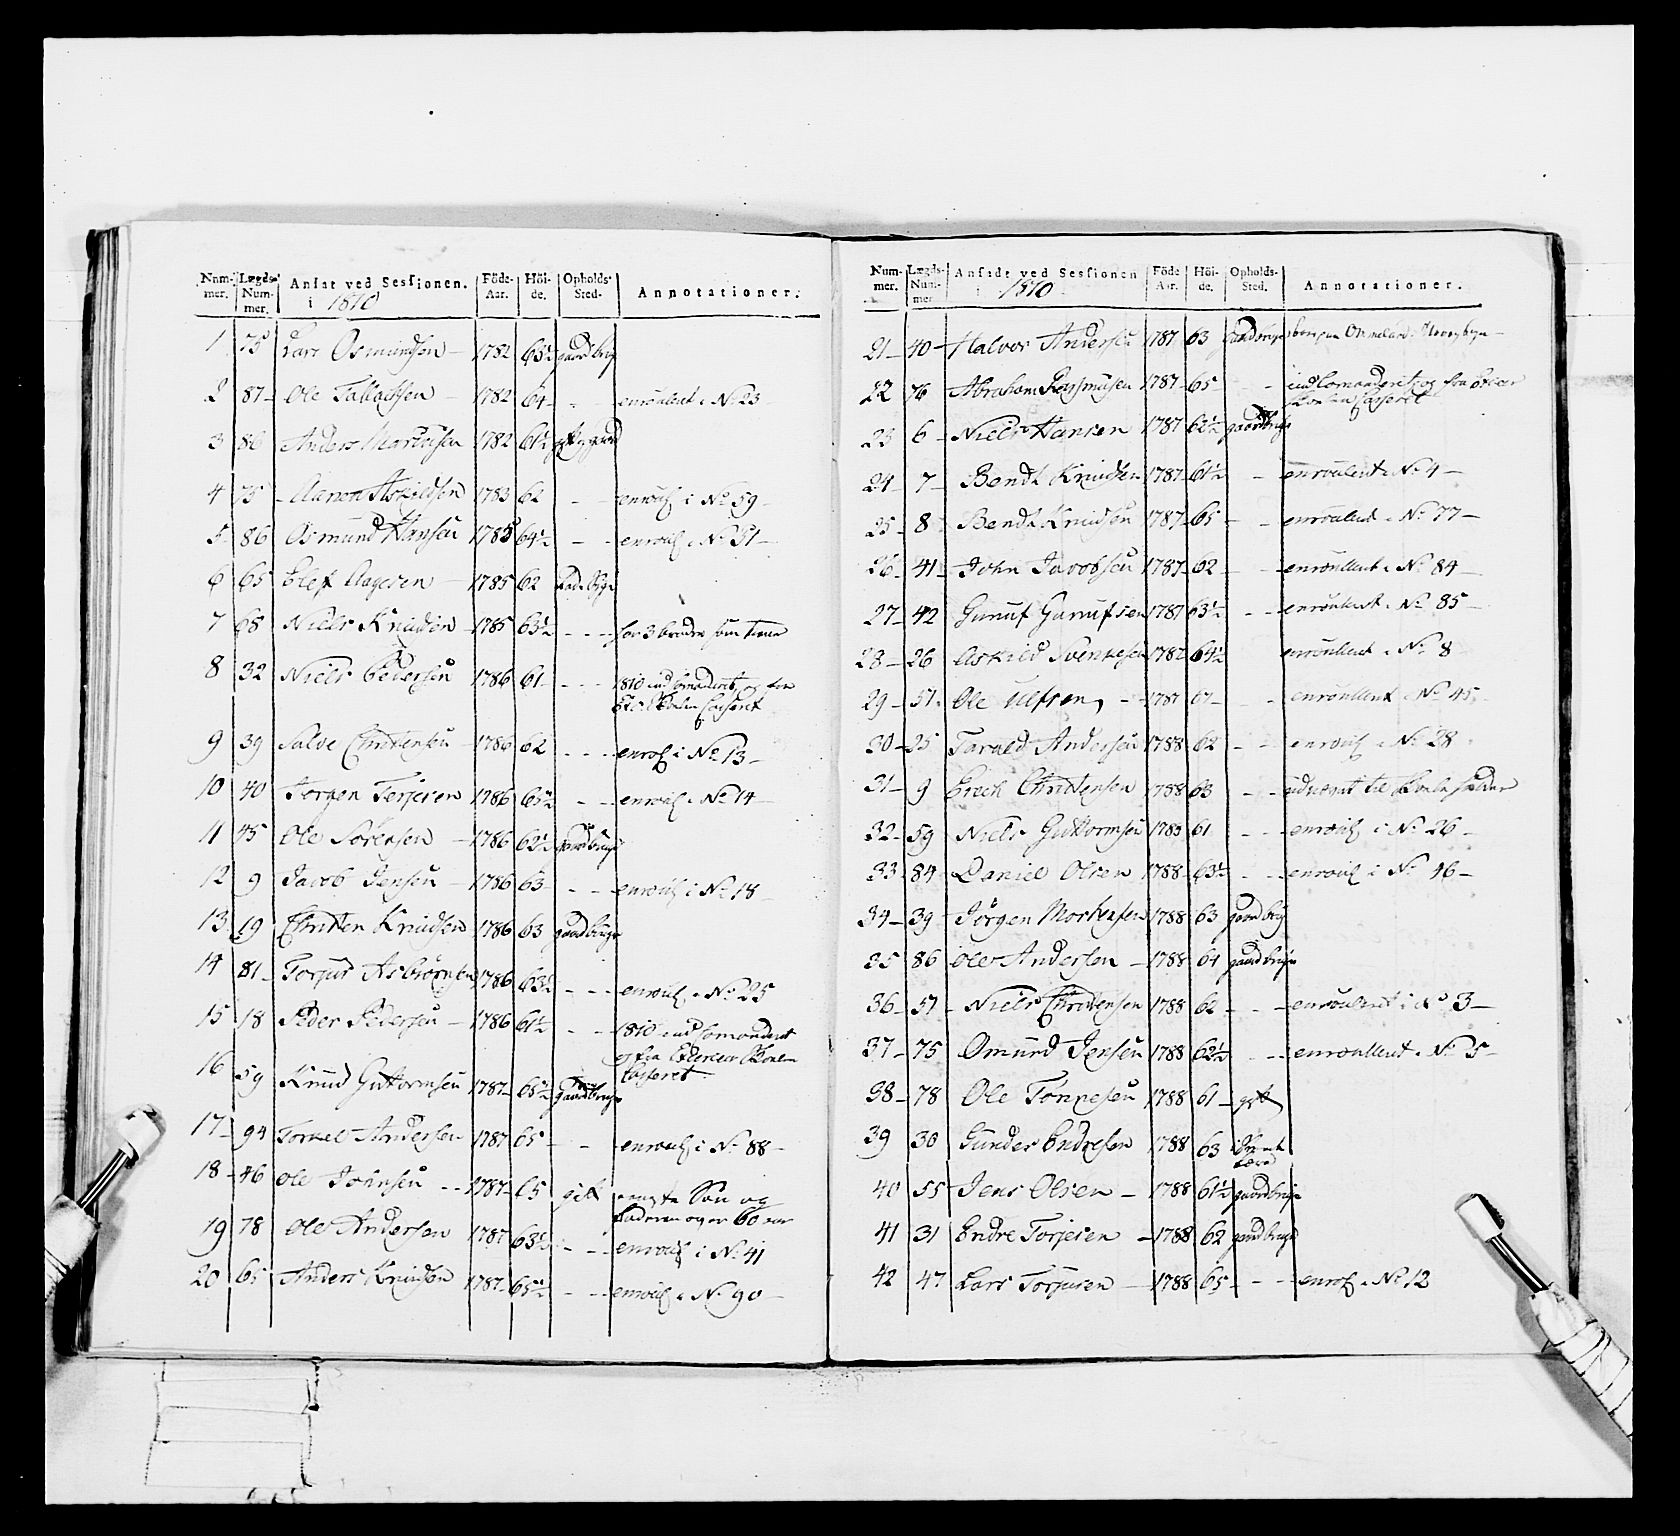 Num-mer. Lægds-Num-mer. Ansat ved Sessionen. i 1810 Föde-Aar. Höi-de. Opholds-Sted. Annotationer.
1 75 Lars Osmundsen 1782 63½ gaardbrug
2 87 Ole Tallacsen 1782 64 - enroulert i No 23
3 86 Anders 1782 61½
4 75 Aanon Askildsen 1783 62 - - enroul i No 59
5 86 Osmund Hansen 1785 64½ - - enroul i No 51
6 65 Elef Aagesen 1785 62
7 68 Niels Knudsen 1785 63½ - - - har 3 brødre som tiener
8 32 Niels Pedersen 1786 61 - - - 1810 indcomanderet og fra
Exc: Skolen Casseret
9 39 Salve Christensen 1786 62 - - - enrol i No 13
10 40 Jørgen Terjesen 1786 65½ - - enroul i No 14
11 45 Ole Sørensen 1786 62½ gaardbruge
12 9 Jacob Jensen 1786 63 - - enroul i No 18
13 19 Christen Knudsen 1786 63 gaardbruge
14 81 Torjus Asbiørnsen 1786 63½ - - - enroul i No 25
15 18 Peder Pedersen 1786 61½ - - 1810 indcomandert
og fra Exercer Skolen
Casseret
16 59 Knud Guttormsen 1787 65½ gaardbruge
17 94 Torkel Andersen 1787 65 - - enroul i No 88
18 46 Ole Johnsen 1787 65 gift Søn og
Faderen over 60 aar
19 78 Ole Andersen 1787 63½ - - enroul i No 41
20 65 Anders Knudsen 1787 65½ - - enroul i No 90
Num-mer. Lægds-Num-mer. Ansadt ved Sessionen i 1810 Föde-Aar. Höi-de. Opholds-Sted. Annotationer.
21 40 Halvor Andersen 1787 63 gaardbruge
22 76 Abraham Rasmusen 1787 65 - indcomanderet og fra Excer
Skolen Casseret
23 6 Niels Hansen 1787 62½ gaardbruge
24 7 Bendt Knudsen 1787 61½ - enroulert i No 4
25 8 Bendt Knudsen 1787 65 - - enroulert i No 77
26 41 John Jacobsen 1787 62 - - enroullert i No 84
27 42 Gunuf Gunufsen 1787 63½ - - enroulert i No 85
28 26 Askild Svenkesen 1787 64½ enroullert i No 8
29 51 Ole Ulfsen 1787 67 - - enroullert i No 45
30 25 Tarald Andersen 1788 62 - - enroul i No 28
31 9 Erich Christensen 1788 63 - - udnævnt til Skole holder
32 59 Niels Guttormsen 1788 61 - - enroul i No 26
33 84 Daniel Olsen 1788 63½ - - enroul i No 46
34 39 Jørgen Mortensen 1788 63 gaardbrug
35 86 Ole Andersen 1788 64 gaardbruge
36 51 Niels Christensen 1788 62 - - enroulert i No 3
37 75 Omund Jensen 1788 62½ - - enroullert i No 5
38 78 Ole Tønnesen 1788 61 gift
39 30 Gunder Endresen 1788 63
40 55 Jens Olsen 1788 61½ gaardbruge
41 31 Endre Torjesen 1788 62 gaardbruge
42 47 Lars Torjusen 1788 65 - - enrol i No 12